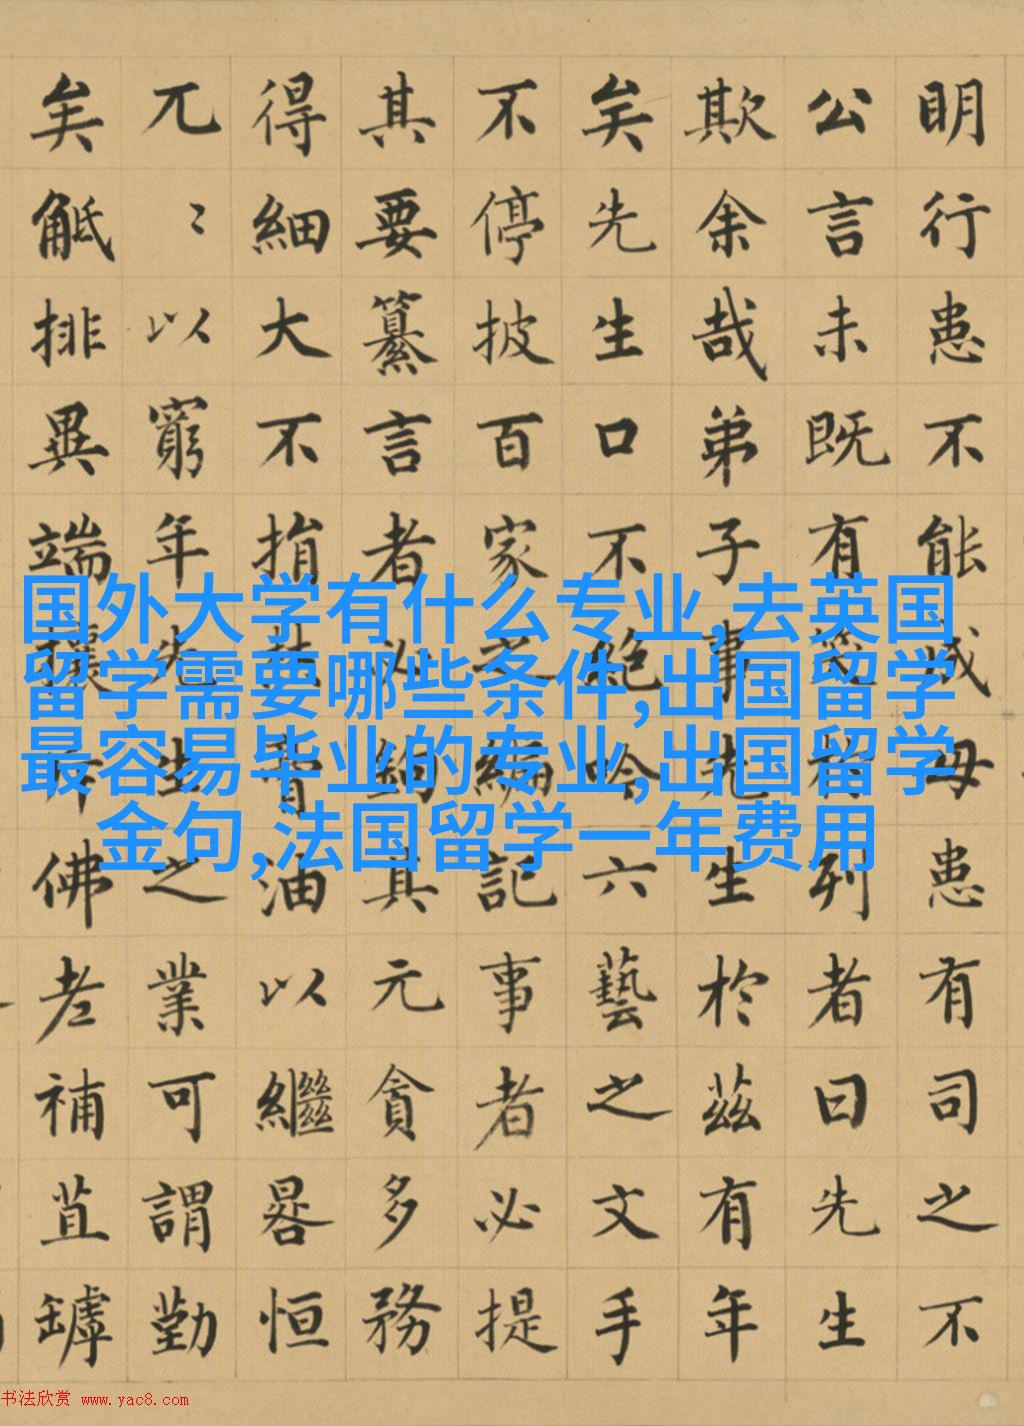 明行患不能成毋患有司之不
公言未既有笑於列者曰先生
欺余哉弟子事先生於茲有年
矣先生口不絶吟六藝之文手
不停披百家之編記事者必提
其要纂言者必鉤其元貪多務
得細大不捐焚膏油以繼晷恒
兀〻以窮年先生之業可謂勤
矣觝排異端攘斥佛老補苴罅
国外大学有什么专业,去英国
留学需要哪些条件,出国留学
最容易毕业的专业,出国留学
金句,法国留学一年费用
书法欣赏 www.yac8.com